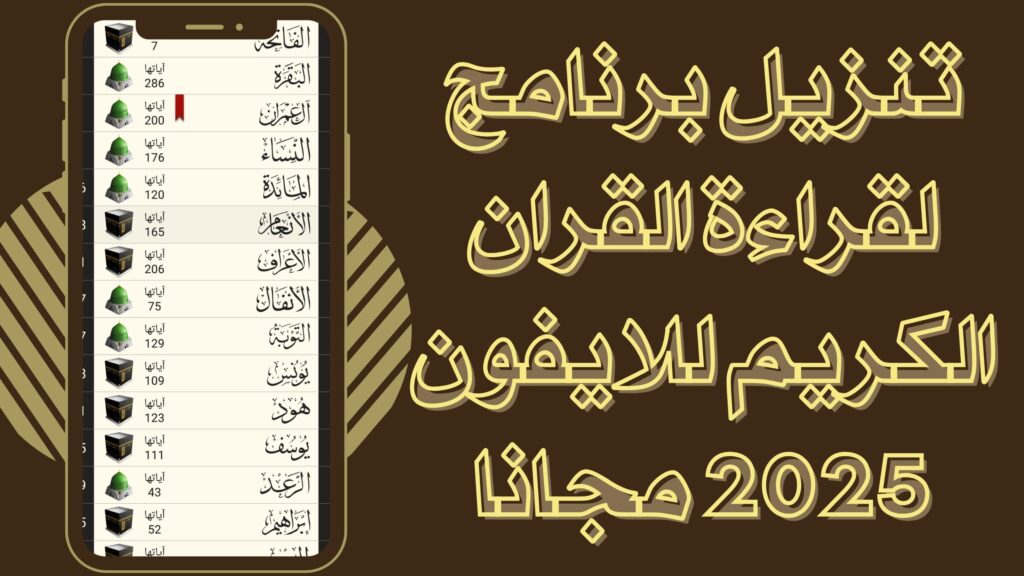 تنزيل برنامج
لقراءة القران
الكريم للايفون
2025 مجانا
الفاتحة
7
البقرة
آياتها
286
آل عمران
آياتها
200
النساء
آياتها
176
المائدة
آياتها
120
الأنعام
آياتها
165
الأعراف
آياتها
206
الأنفال
آياتها
75
التوبة
آياتها
129
يونس
آياتها
109
هود
آياتها
123
يوسف
آياتها
111
الرعد
آياتها
43
إبراهيم
آياتها
52
آياتها